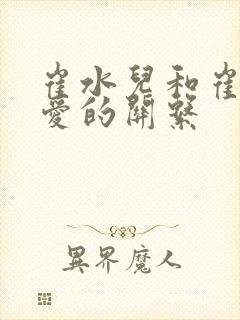 崔水兒和崔
愛的關係
異界魔人